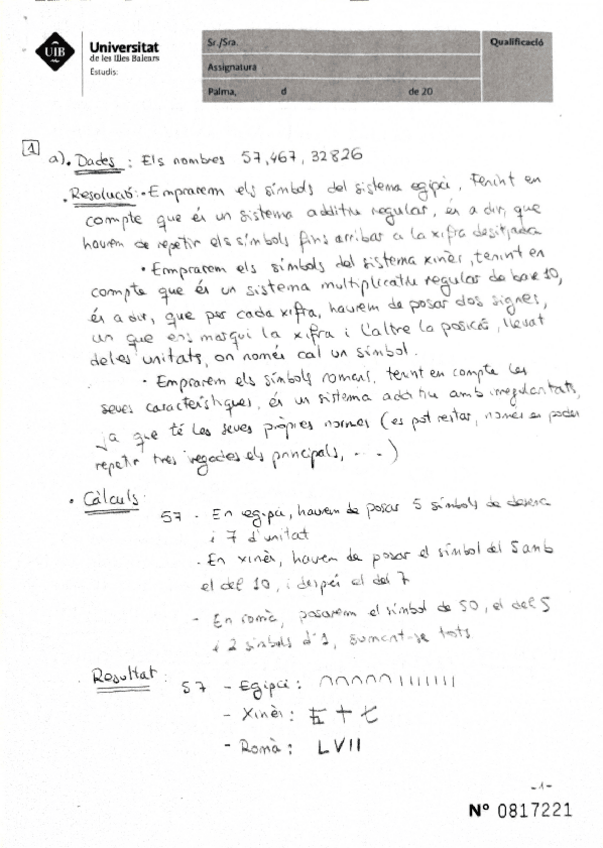 UIB
Universitat
de les Illes Balears
Estudis:
Sr./Sra.
Qualificació
Assignatura
Palma, d de 20
1
a). Dades : Els nombres 57, 467, 32826
• Resolució: • Emprarem els símbols del sistema egipci, tenint en
compte que és un sistema additiu regular, és a dir, que
haurem de repetir els símbols fins arribar a la xifra desitjada
• Emprarem els símbols del sistema xinès, tenint en
compte que és un sistema multiplicatiu regular de base 10,
és a dir, que per cada xifra, haurem de posar dos signes,
un que ens marqui la xifra i l'altre la posició, llevat
de les unitats, on només cal un símbol.
• Emprarem els símbols romans, tenint en compte les
seves característiques, és un sistema additiu amb irregularitats,
ja que té les seves pròpies normes (es pot restar, només es poden
repetir tres vegades els principals, ...)
• Càlculs:
57 - En egipci, haurem de posar 5 símbols de desena
i 7 d'unitat
- En xinès, haurem de posar el símbol del 5 amb
el del 10, i després el del 7
- En romà, posarem el símbol de 50, el del 5
i 2 símbols d'1, sumant-se tots
Resultat :
57 - Egipci : ∩∩∩∩∩ | | | | | | |
- Xinès : 五十七
- Romà : LVII
-1-
Nº 0817221